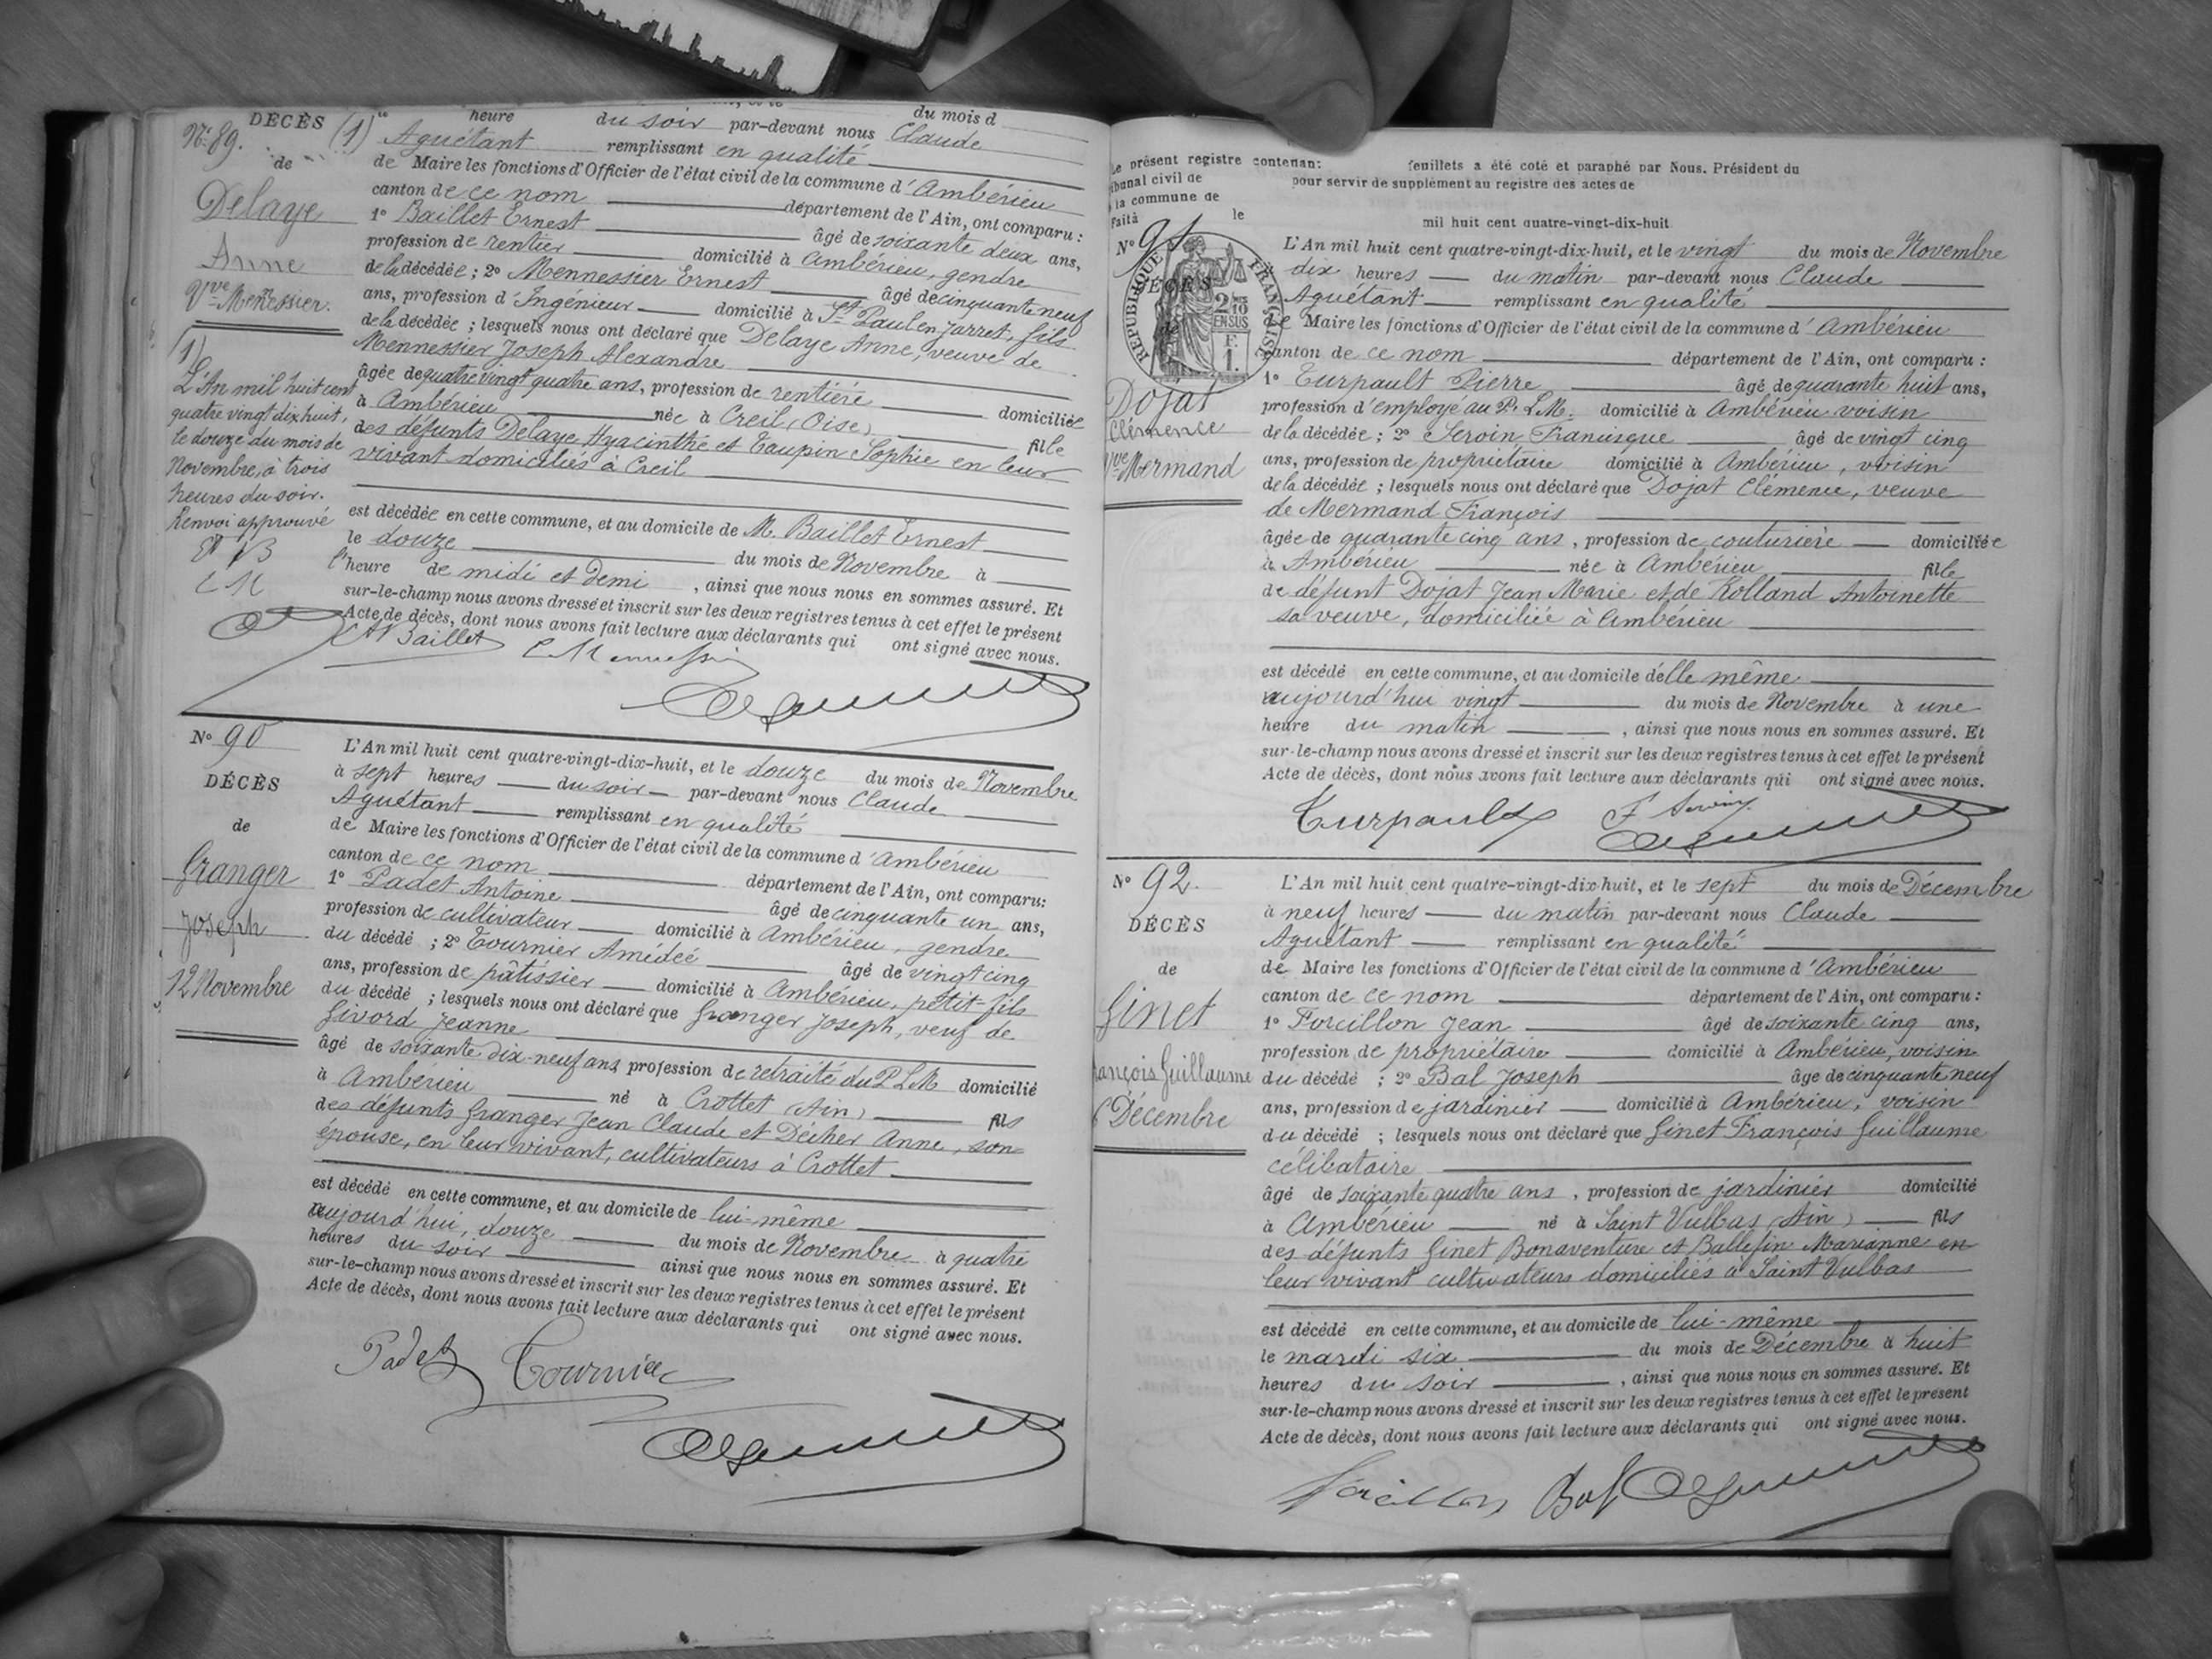 N° 89.
DÉCÈS
de
Delaye
Anne
Vve Mennessier.
(1)
L'An mil huit cent
quatre vingt dix huit,
le douze du mois de
Novembre, à trois
heures du soir.
Renvoi approuvé
EB
EM
du mois d
(1) heure du soir par-devant nous Claude
Aguétant remplissant en qualité
de Maire les fonctions d'Officier de l'état civil de la commune d'Ambérieu
canton de ce nom département de l'Ain, ont comparu :
1° Baillet Ernest âgé de soixante deux ans,
profession de rentier domicilié à Ambérieu, gendre
de la décédée ; 2° Mennessier Ernest âgé de cinquante neuf
ans, profession d'Ingénieur domicilié à St Paul en Jarret, fils
de la décédée ; lesquels nous ont déclaré que Delaye Anne, veuve de
Mennessier Joseph Alexandre
âgée de quatre vingt quatre ans, profession de rentière domiciliée
à Ambérieu née à Creil (Oise) fille
des défunts Delaye Hyacinthe et Taupin Sophie en leur
vivant domiciliés à Creil
est décédée en cette commune, et au domicile de M. Baillet Ernest
le douze du mois de Novembre à
l'heure de midi et demi , ainsi que nous nous en sommes assuré. Et
sur-le-champ nous avons dressé et inscrit sur les deux registres tenus à cet effet le présent
Acte de décès, dont nous avons fait lecture aux déclarants qui ont signé avec nous.
Baillet E Mennessier
N° 90
DÉCÈS
de
Granger
Joseph
12 Novembre
L'An mil huit cent quatre-vingt-dix-huit, et le douze du mois de Novembre
à sept heures du soir par-devant nous Claude
Aguétant remplissant en qualité
de Maire les fonctions d'Officier de l'état civil de la commune d'Ambérieu
canton de ce nom département de l'Ain, ont comparu:
1° Padet Antoine âgé de cinquante un ans,
profession de cultivateur domicilié à Ambérieu, gendre
du décédé ; 2° Tournier Amédée âgé de vingt cinq
ans, profession de pâtissier domicilié à Ambérieu, petit-fils
du décédé ; lesquels nous ont déclaré que Granger Joseph, veuf de
Givord Jeanne
âgé de soixante dix-neuf ans, profession de retraité du P L M domicilié
à Ambérieu né à Crottet (Ain) fils
des défunts Granger Jean Claude et Décher Anne, son
épouse, en leur vivant, cultivateurs à Crottet
est décédé en cette commune, et au domicile de lui-même
aujourd'hui, douze du mois de Novembre à quatre
heures du soir ainsi que nous nous en sommes assuré. Et
sur-le-champ nous avons dressé et inscrit sur les deux registres tenus à cet effet le présent
Acte de décès, dont nous avons fait lecture aux déclarants qui ont signé avec nous.
Padet Tournier
le présent registre contenan: feuillets a été coté et paraphé par Nous. Président du
ibunal civil de pour servir de supplément au registre des actes de
la commune de
Fait à le mil huit cent quatre-vingt-dix-huit
N° 91
RÉPUBLIQUE FRANÇAISE
2/10 EN SUS
F. 1.
DÉCÈS
de
Dojat
Clémence
Vve Mermand
L'An mil huit cent quatre-vingt-dix-huit, et le vingt du mois de Novembre
dix heures du matin par-devant nous Claude
Aguétant remplissant en qualité
de Maire les fonctions d'Officier de l'état civil de la commune d'Ambérieu
canton de ce nom département de l'Ain, ont comparu :
1° Turpault Pierre âgé de quarante huit ans,
profession d'employé au P. L. M. domicilié à Ambérieu voisin
de la décédée ; 2° Seroin Francisque âgé de vingt cinq
ans, profession de propriétaire domicilié à Ambérieu, voisin
de la décédée ; lesquels nous ont déclaré que Dojat Clémence, veuve
de Mermand François
âgée de quarante cinq ans, profession de couturière domiciliée
à Ambérieu née à Ambérieu fille
de défunt Dojat Jean Marie et de Rolland Antoinette
sa veuve, domiciliée à Ambérieu
est décédé en cette commune, et au domicile d'elle même
aujourd'hui vingt du mois de Novembre à une
heure du matin , ainsi que nous nous en sommes assuré. Et
sur-le-champ nous avons dressé et inscrit sur les deux registres tenus à cet effet le présent
Acte de décès, dont nous avons fait lecture aux déclarants qui ont signé avec nous.
Turpault F Seroin
N° 92.
DÉCÈS
de
Ginet
François Guillaume
6 Décembre
L'An mil huit cent quatre-vingt-dix-huit, et le sept du mois de Décembre
à neuf heures du matin par-devant nous Claude
Aguétant remplissant en qualité
de Maire les fonctions d'Officier de l'état civil de la commune d'Ambérieu
canton de ce nom département de l'Ain, ont comparu :
1° Forcillon Jean âgé de soixante cinq ans,
profession de propriétaire domicilié à Ambérieu, voisin
du décédé ; 2° Bal Joseph âgé de cinquante neuf
ans, profession de jardinier domicilié à Ambérieu, voisin
du décédé ; lesquels nous ont déclaré que Ginet François Guillaume
célibataire
âgé de soixante quatre ans, profession de jardinier domicilié
à Ambérieu né à Saint Vulbas (Ain) fils
des défunts Ginet Bonaventure et Ballefin Marianne en
leur vivant cultivateurs domiciliés à Saint Vulbas
est décédé en cette commune, et au domicile de lui-même
le mardi six du mois de Décembre à huit
heures du soir , ainsi que nous nous en sommes assuré. Et
sur-le-champ nous avons dressé et inscrit sur les deux registres tenus à cet effet le présent
Acte de décès, dont nous avons fait lecture aux déclarants qui ont signé avec nous.
Forcillon Bal